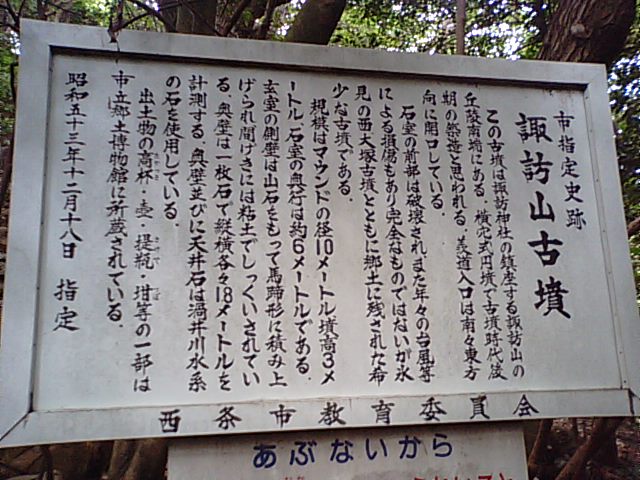 市指定史跡
諏訪山古墳
この古墳は諏訪神社の鎮座する諏訪山の
丘陵南端にある。横穴式円墳で古墳時代後
期の築造と思われる。羨道入口は南々東方
向に開口している。
石室の前部は破壊され、また年々の台風等
による損傷もあり完全なものではないが氷
見の西大塚古墳とともに郷土に残された希
少な古墳である。
規模はマウンドの径10メートル墳高3メ
ートル、石室の奥行は約6メートルである。
玄室の側壁は山石をもって馬蹄形に積み上
げられ間げきには粘土でしっくいされてい
る。奥壁は一枚石で縦横各々1.8メートルを
計測する。奥壁並びに天井石は渦井川水系
の石を使用している。
出土物の高杯・壺・提瓶・坩等の一部は
市立郷土博物館に所蔵されている。
昭和五十三年十二月十八日 指定
西条市教育委員会
あぶないから